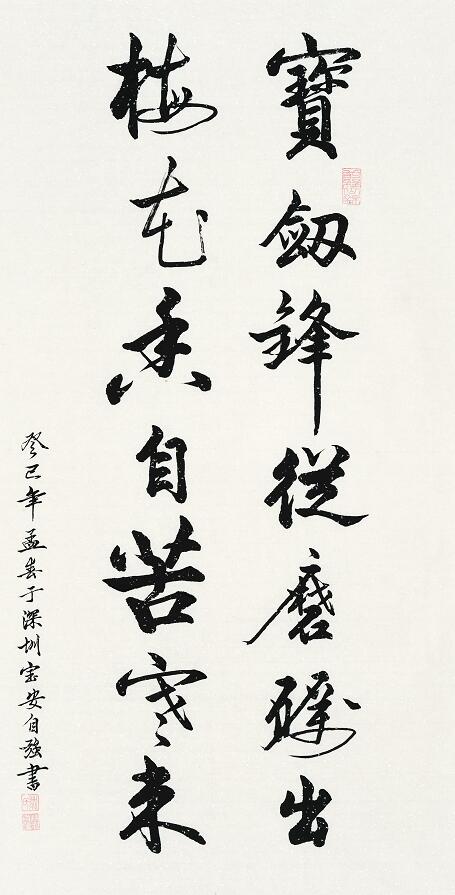 寶劔鋒從磨礪出
梅花香自苦寒来
癸巳年孟春于深圳宝安自强書